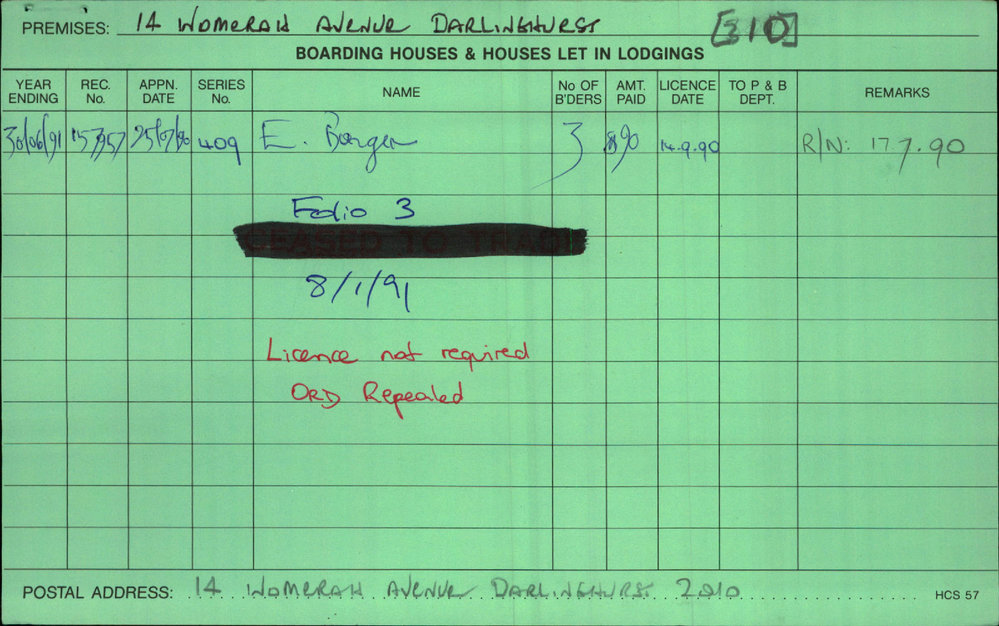 PREMISES: 14 WOMERAH AVENUE DARLINGHURST [310]
BOARDING HOUSES & HOUSES LET IN LODGINGS
YEAR ENDING REC. No. APPN. DATE SERIES No. NAME No OF B'DERS AMT. PAID LICENCE DATE TO P & B DEPT. REMARKS
30/06/91 157957 25/07/90 409 E. 3 $90 14.9.90 R/N: 17.7.90
Folio 3
CEASED TO TRADE
8/1/91
Licence not required
ORD Repealed
POSTAL ADDRESS: 14 WOMERAH AVENUE DARLINGHURST 2010 HCS 57